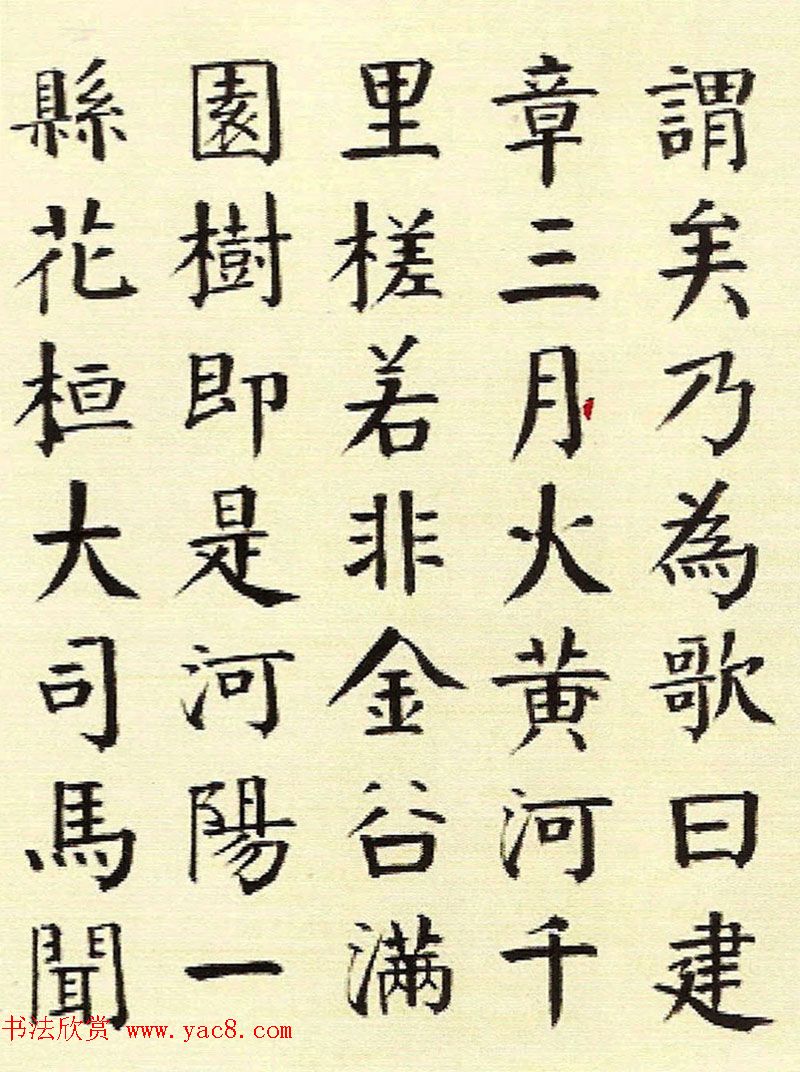 謂矣乃為歌曰建
章三月火黄河千
里槎若非金谷滿
園樹即是河陽一
縣花桓大司馬聞
书法欣赏 www.yac8.com